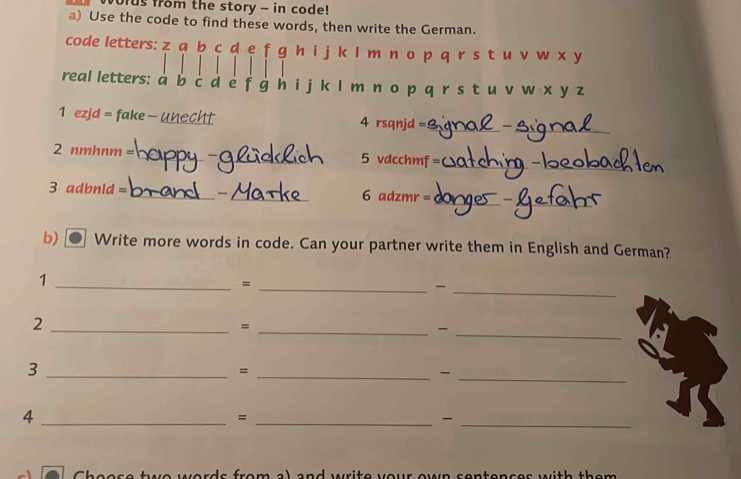 Words from the story – in code!
a) Use the code to find these words, then write the German.
code letters: z a b c d e f g h i j k l m n o p q r s t u v w x y
real letters: a b c d e f g h i j k l m n o p q r s t u v w x y z
1 ezjd = fake – unecht
4 rsqnjd = signal – signal
2 nmhnm = happy – glücklich
5 vdcchmf = watching – beobachten
3 adbnld = brand – Marke
6 adzmr = danger – Gefahr
b) Write more words in code. Can your partner write them in English and German?
1 = –
2 = –
3 = –
4 = –
c) Choose two words from a) and write your own sentences with them